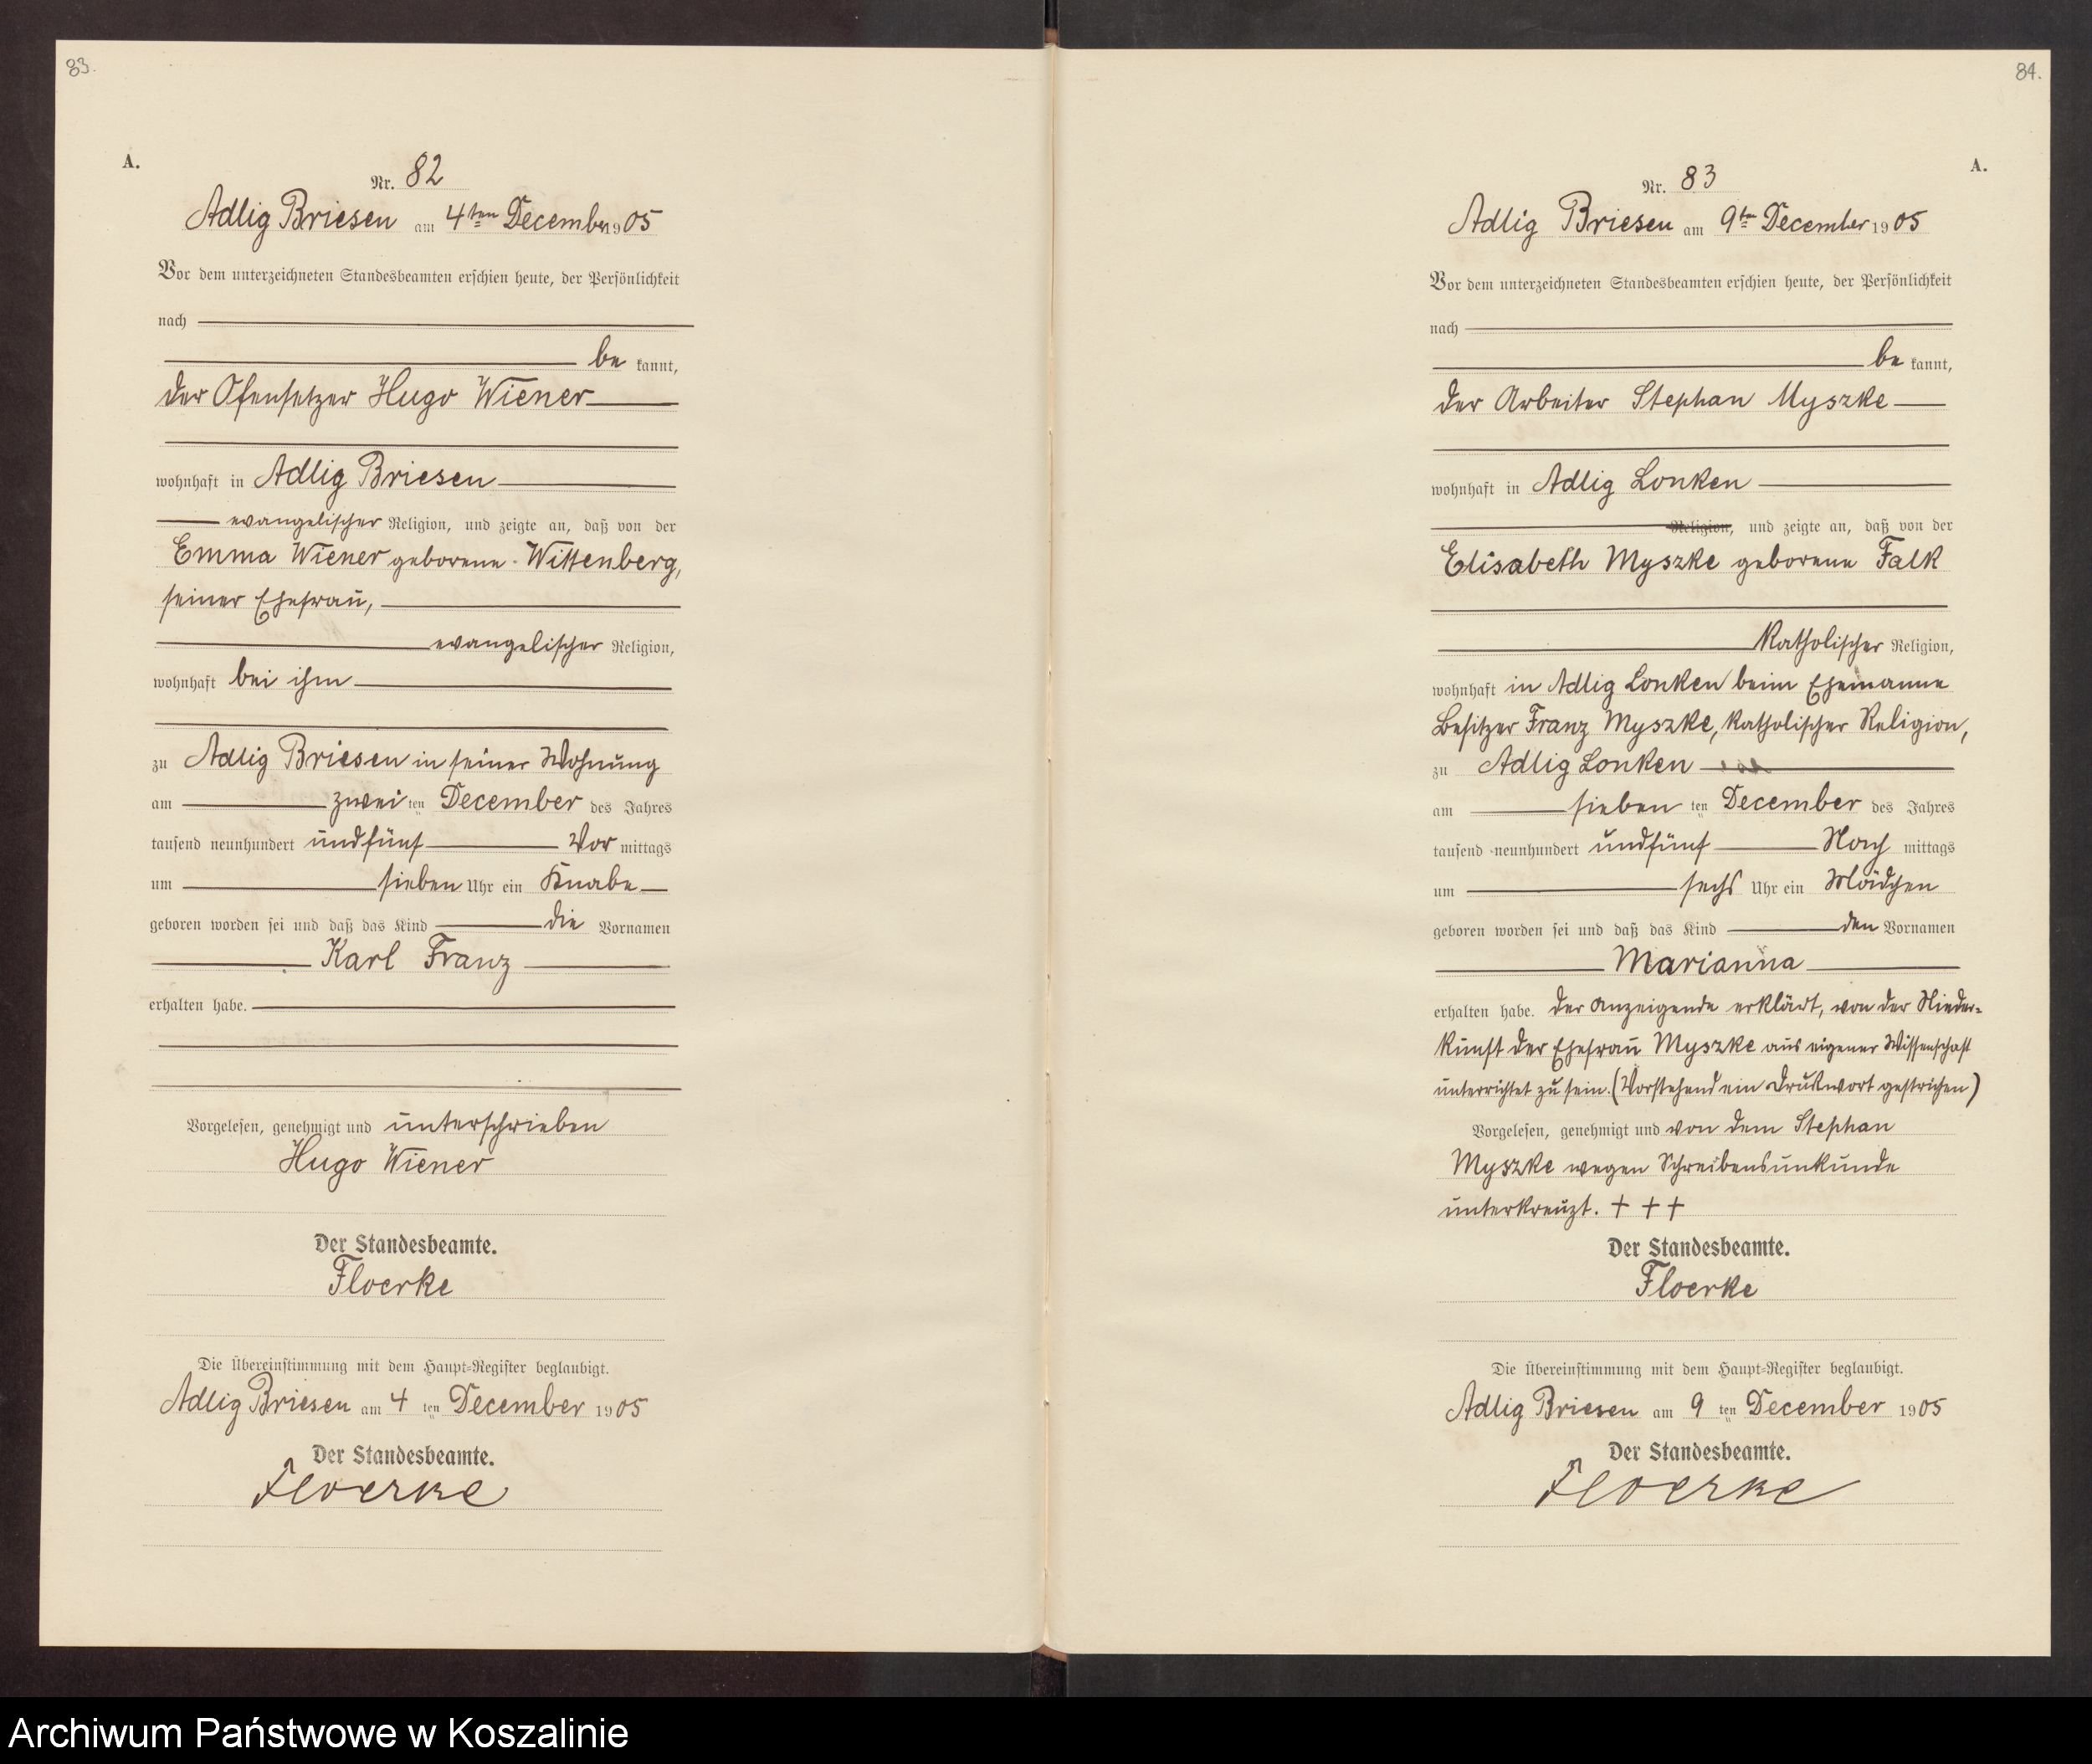 83.
A.
Nr. 82
Adlig Briesen am 4ten December 1905
Vor dem unterzeichneten Standesbeamten erschien heute, der Persönlichkeit
nach
be kannt,
der Ofensetzer Hugo Wiener
wohnhaft in Adlig Briesen
evangelischer Religion, und zeigte an, daß von der
Emma Wiener geborene Wittenberg,
seiner Ehefrau,
evangelischer Religion,
wohnhaft bei ihm
zu Adlig Briesen in seiner Wohnung
am zwei ten December des Jahres
tausend neunhundert undfünf Vor mittags
um sieben Uhr ein Knabe
geboren worden sei und daß das Kind die Vornamen
Karl Franz
erhalten habe.
Vorgelesen, genehmigt und unterschrieben
Hugo Wiener
Der Standesbeamte.
Floerke
Die Übereinstimmung mit dem Haupt-Register beglaubigt.
Adlig Briesen am 4 ten December 1905
Der Standesbeamte.
Floerke
84.
A.
Nr. 83
Adlig Briesen am 9ten December 1905
Vor dem unterzeichneten Standesbeamten erschien heute, der Persönlichkeit
nach
be kannt,
der Arbeiter Stephan Myszke
wohnhaft in Adlig Lonken
Religion, und zeigte an, daß von der
Elisabeth Myszke geborene Falk
Katholischer Religion,
wohnhaft in Adlig Lonken beim Ehemanne
Besitzer Franz Myszke, katholischer Religion,
zu Adlig Lonken
am sieben ten December des Jahres
tausend neunhundert undfünf Nach mittags
um sechs Uhr ein Mädchen
geboren worden sei und daß das Kind den Vornamen
Marianna
erhalten habe. Der Anzeigende erklärt, von der Nieder-
kunft der Ehefrau Myszke aus eigener Wissenschaft
unterrichtet zu sein. (Vorstehend ein Druckwort gestrichen)
Vorgelesen, genehmigt und von dem Stephan
Myszke wegen Schreibensunkunde
unterkreuzt. + + +
Der Standesbeamte.
Floerke
Die Übereinstimmung mit dem Haupt-Register beglaubigt.
Adlig Briesen am 9 ten December 1905
Der Standesbeamte.
Floerke
Archiwum Państwowe w Koszalinie